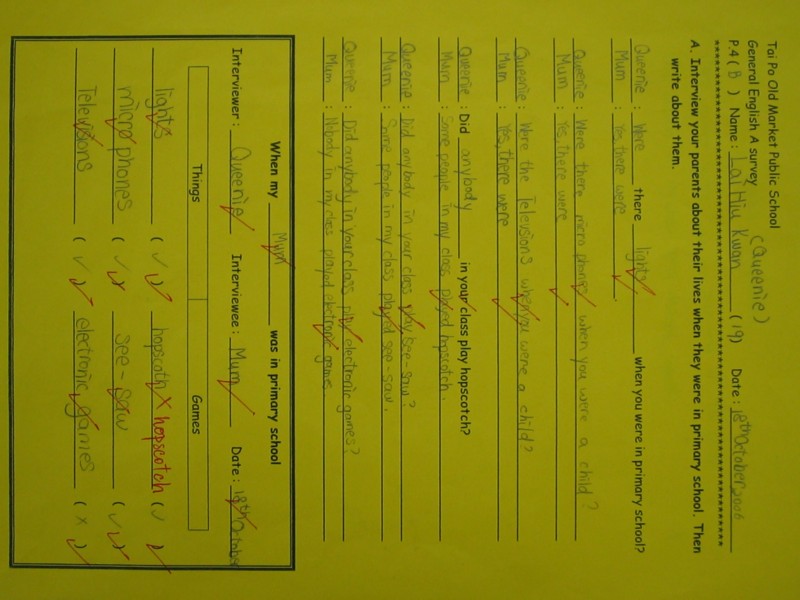 Tai Po Old Market Public School
(Queenie)
General English A survey
P.4 ( B ) Name : Lai Hiu Kwan ( 19 ) Date : 18th October 2006
A. Interview your parents about their lives when they were in primary school. Then
write about them.
Queenie : Were there lights when you were in primary school?
Mum : Yes, there were.
Queenie : Were there micro phones when you were a child?
Mum : Yes, there were
Queenie : Were the Televisions when you were a child?
Mum : Yes, there were
Queenie : Did anybody in your class play hopscotch?
Mum : Some people in my class played hopscotch.
Queenie : Did anybody in your class play see-saw?
Mum : Some people in my class played see-saw.
Queenie : Did anybody in your class play electronic games?
Mum : Nobody in my class played electronic games
When my Mum was in primary school
Interviewer : Queenie Interviewee : Mum Date : 18th October
Things Games
lights ( ✓ ) hopscoth X hopscotch ( ✓ )
micro phones ( ✓ ) see-saw ( ✓ )
Televisions ( ✓ ) electronic games ( X )